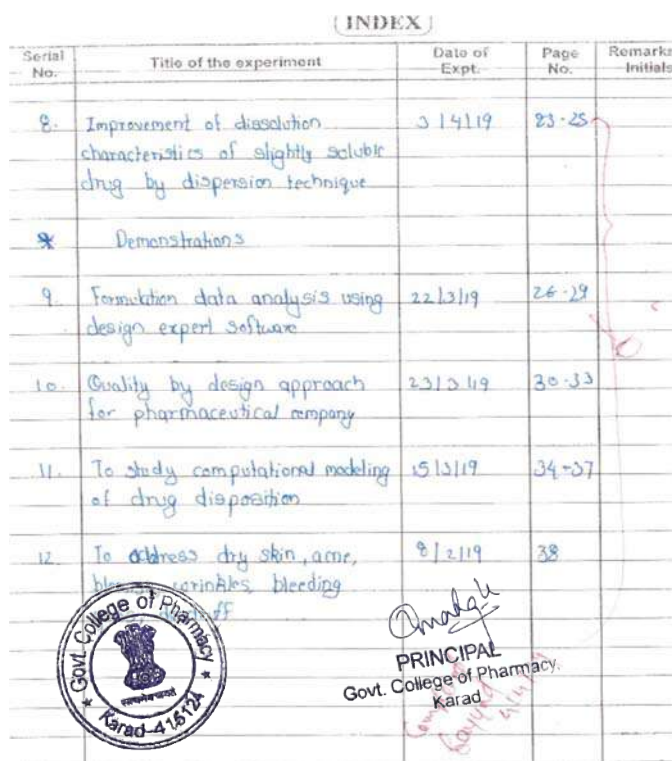 (INDEX)
Serial No. Title of the experiment Date of Expt. Page No. Remarks Initials
8. Improvement of dissolution 3/4/19 23-25
characteristics of slightly soluble
drug by dispersion technique
* Demonstrations
9. Formulation data analysis using 22/3/19 26-29
design expert software
10. Quality by design approach 23/3/19 30-33
for pharmaceutical company
11. To study computational modeling 15/3/19 34-37
of drug disposition
12. To address dry skin, acne, 8/2/19 38
wrinkles, bleeding
Govt. College of Pharmacy
Karad-415124
सत्यमेव जयते
PRINCIPAL
Govt. College of Pharmacy,
Karad